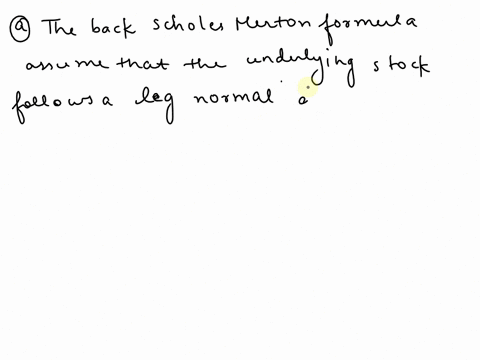 (a) The back scholes Merton formula
assume that the undulying stock
follows a log normal a